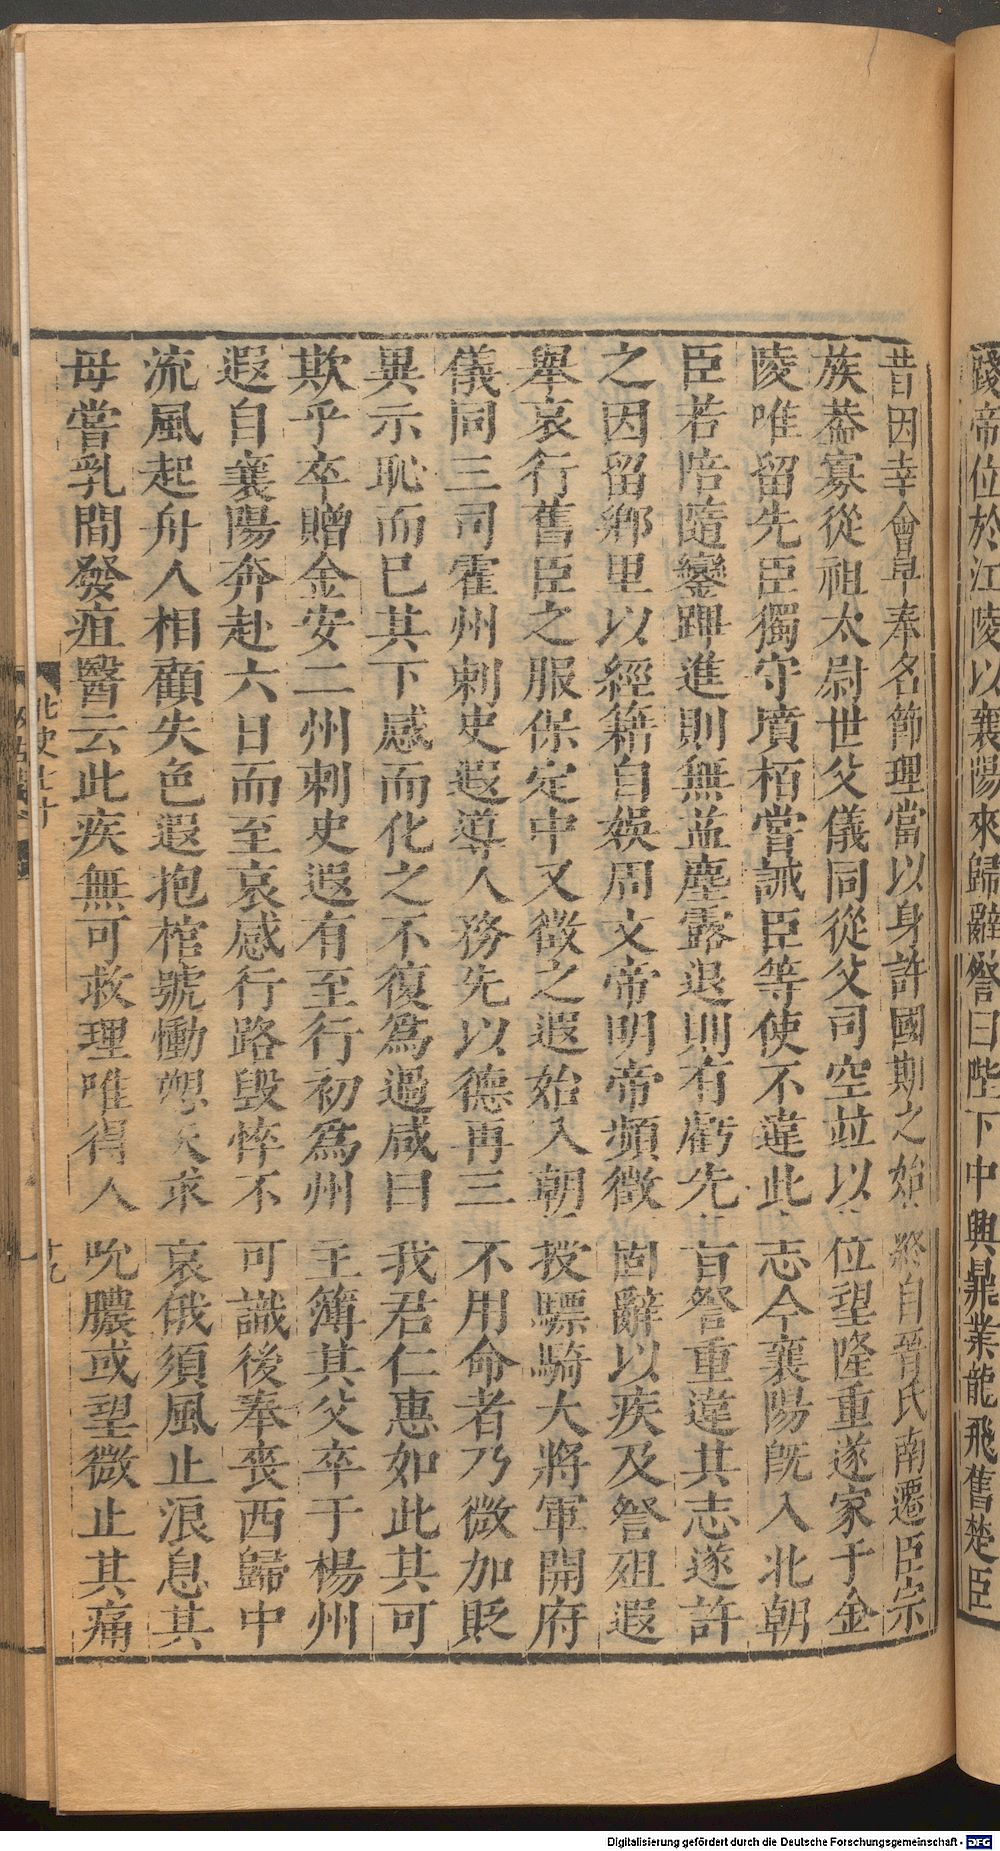 踐帝位於江陵以襄陽來歸辭詧曰陛下中興鼎業龍飛舊楚臣
昔因幸會早奉名節理當以身許國期之始終自晉氏南遷臣宗
族蓋寡從祖太尉世父儀同從父司空並以位望隆重遂家于金
陵唯留先臣獨守墳栢嘗誡臣等使不違此志今襄陽既入北朝
臣若陪隨鑾蹕進則無益塵露退則有虧先旨詧重違其志遂許
之因留鄉里以經籍自娛周文帝明帝頻徵固辭以疾及詧殂遐
舉哀行舊臣之服保定中又徵之遐始入朝授驃騎大將軍開府
儀同三司霍州刺史遐導人務先以德再三不用命者乃微加貶
異示恥而已其下感而化之不復爲過咸曰我君仁惠如此其可
欺乎卒贈金安二州刺史遐有至行初爲州主簿其父卒于楊州
遐自襄陽奔赴六日而至哀感行路毀悴不可識後奉喪西歸中
流風起舟人相顧失色遐抱棺號慟愬天求哀俄須風止浪息其
母嘗乳間發疽醫云此疾無可救理唯得人吮膿或望微止其痛
北史七十
十九
Digitalisierung gefördert durch die Deutsche Forschungsgemeinschaft - DFG